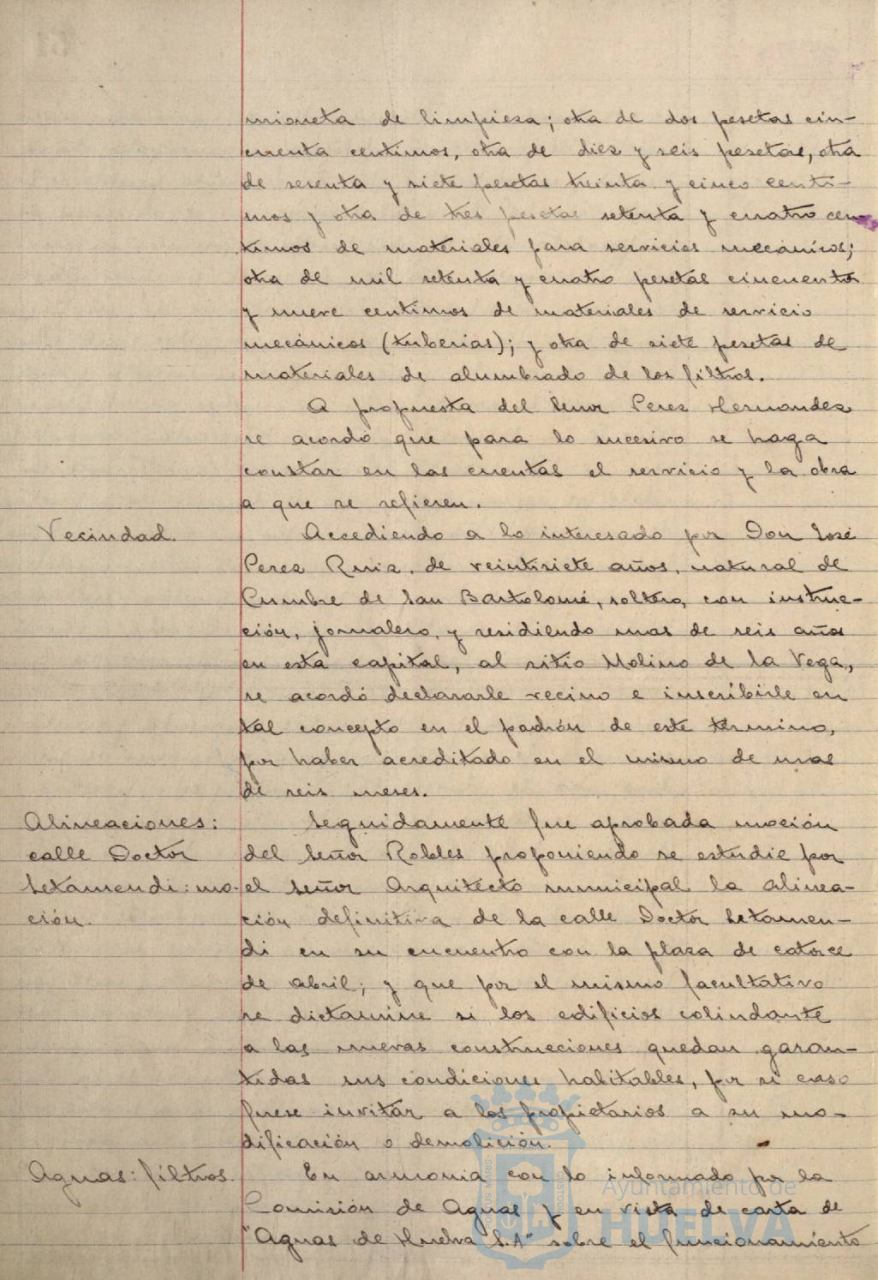 mioneta de limpieza; otra de dos pesetas cin-
cuenta centimos, otra de diez y seis pesetas, otra
de sesenta y siete pesetas treinta y cinco centi-
mos y otra de tres pesetas setenta y cuatro cen
timos de materiales para servicios mecánicos;
otra de mil setenta y cuatro pesetas cincuenta
y nueve centimos de materiales de servicio
mecánicos (tuberias); y otra de siete pesetas de
materiales de alumbrado de los filtros.
A propuesta del Señor Perez Hernandez
se acordó que para lo sucesivo se haga
constar en las cuentas el servicio y la obra
a que se refieren.
Vecindad.
Accediendo a lo interesado por Don José
Perez Ruiz, de veintisiete años, natural de
Cumbre de San Bartolomé, soltero, con instruc-
ción, jornalero, y residiendo mas de seis años
en esta capital, al sitio Molino de la Vega,
se acordó declararle vecino e inscribirle en
tal concepto en el padrón de este término,
por haber acreditado en el mismo de mas
de seis meses.
Alineaciones:
calle Doctor
Letamendi: mo-
ción.
Seguidamente fue aprobada moción
del Señor Robles proponiendo se estudie por
el Señor Arquitecto municipal la alinea-
ción definitiva de la calle Doctor Letamen-
di en su encuentro con la plaza de catorce
de abril; y que por el mismo facultativo
se dictamine si los edificios colindante
a las nuevas construcciones quedan garan-
tidas sus condiciones habitables, por si caso
fuese invitar a los propietarios a su mo-
dificación o demolición.
Aguas: filtros.
En armonia con lo informado por la
Comisión de Aguas y en vista de carta de
"Aguas de Huelva S.A" sobre el funcionamiento
Ayuntamiento de
HUELVA